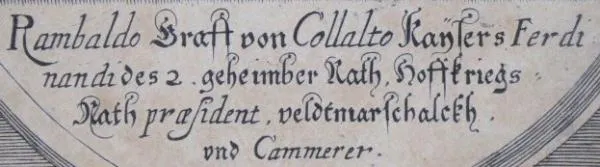 Rambaldo Graff von Collalto Kaÿsers Ferdi
nandi des 2. geheimber Rath, Hoffkriegs-
Rath præsident, veldtmarschalckh,
vnd Cammerer.